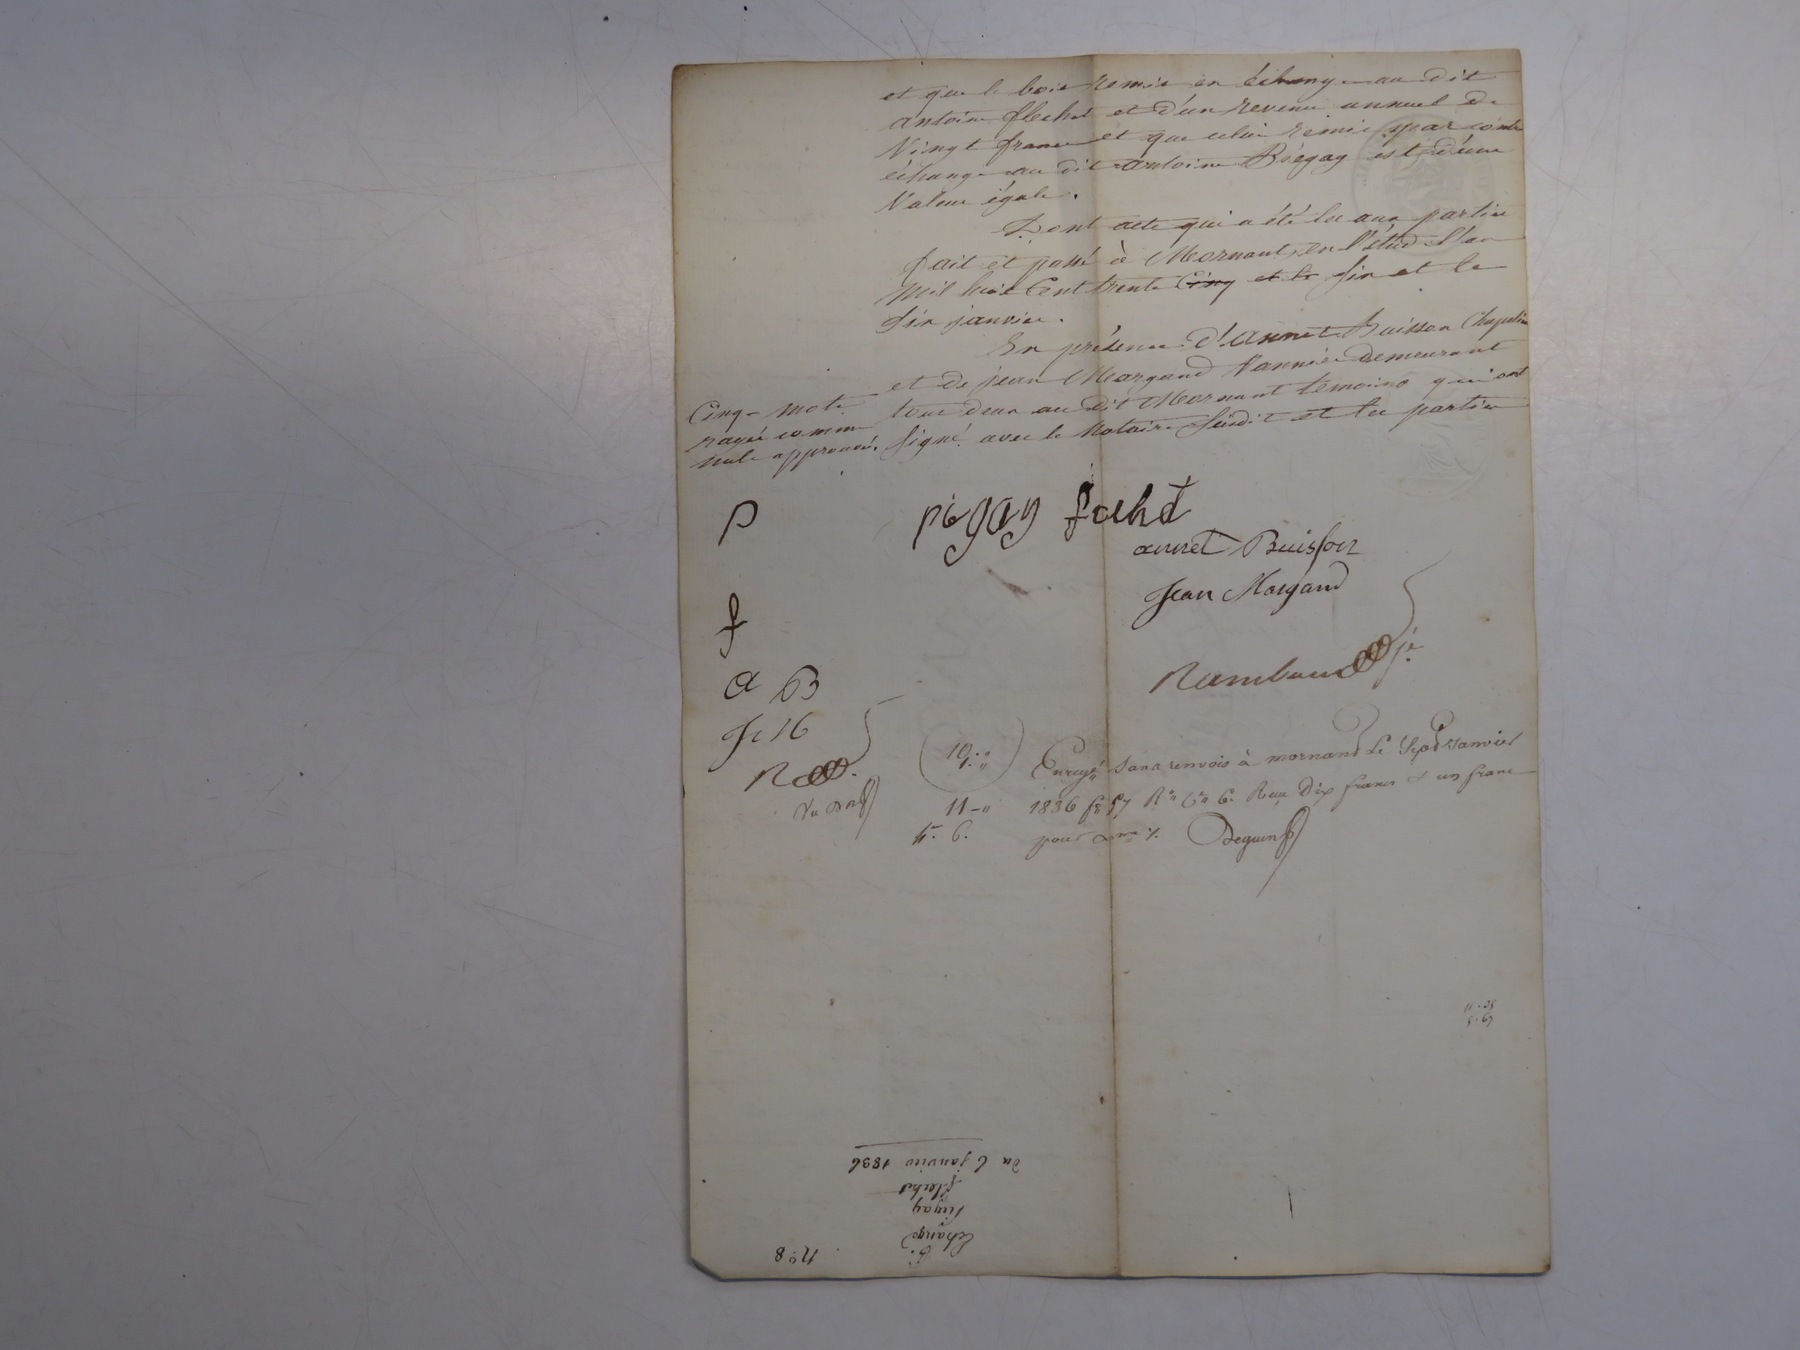 et que le bois remis en échange au dit
antoine flechet et d'un revenu annuel de
Vingt francs et que celui remis par contre
échange au dit antoine Piégay est d'une
Valeur égale.
Dont acte qui a été lu aux parties
fait et passé à Mornant, en l'étude l'an
Mil huit Cent trente Cinq et le six et le
six janvier.
En présence d'annet Buisson Chapelier
et de jean Margand Vannier demeurant
tous deux au dit Mornant temoins qui ont
signé avec le Notaire susdit et les parties
Cinq mots
rayés comme
nuls approuvés.
P
pigay fechet
annet Buisson
Jean Margand
f
a B
Rambaud jne
10 " "
Enregé sans renvois à mornant Le Sept Janvier
11 - "
1836 fo 57 Ro Reçu Dix francs & un franc
pour Deguin
du 6 janvier 1836
flechet
Piegay
Echange
6.
no 8